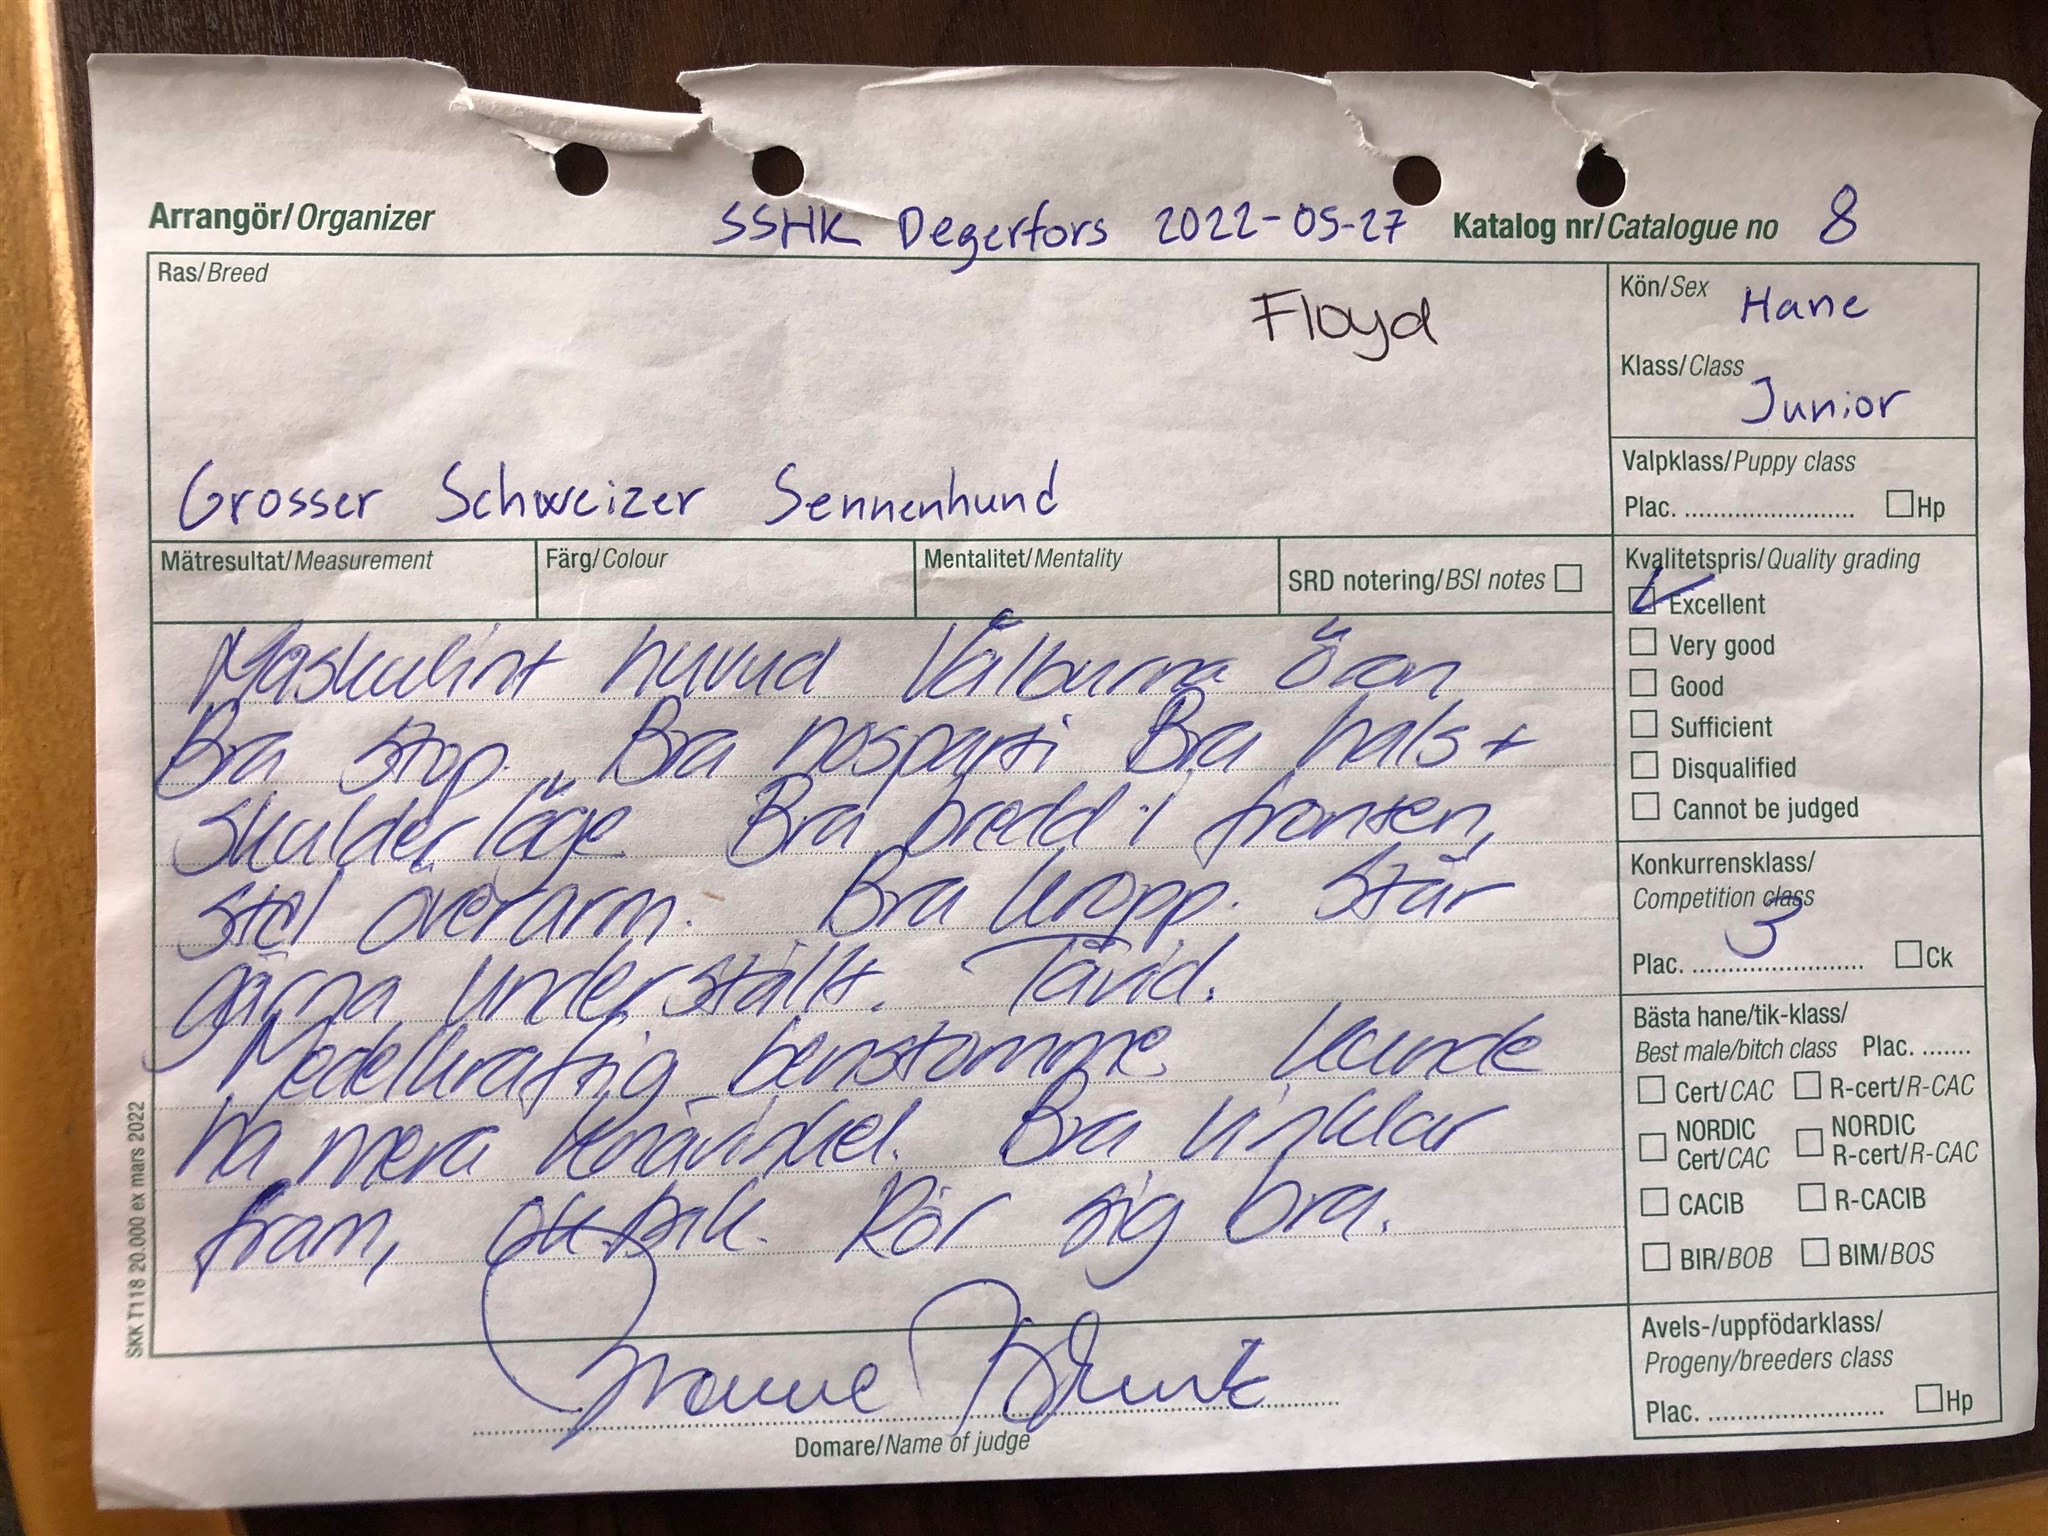 Arrangör/Organizer SSHK Degerfors 2022-05-27 Katalog nr/Catalogue no 8
Ras/Breed
Floyd
Grosser Schweizer Sennenhund
Kön/Sex Hane
Klass/Class
Junior
Valpklass/Puppy class
Plac. ........................ Hp
Mätresultat/Measurement Färg/Colour Mentalitet/Mentality SRD notering/BSI notes
Kvalitetspris/Quality grading
Excellent
Very good
Good
Sufficient
Disqualified
Cannot be judged
Maskulint huvud Välburna öron
Bra stop. Bra nosparti Bra hals +
skulderläge. Bra bredd i fronten,
stel överarm. Bra kropp. Står
gärna underställt. Tåvid.
Medelkraftig benstomme. Kunde
ha mera knävinkel. Bra vinklar
fram, ok bak. Rör sig bra.
Konkurrensklass/
Competition class
3
Plac. ........................ Ck
Bästa hane/tik-klass/
Best male/bitch class Plac. .......
Cert/CAC R-cert/R-CAC
NORDIC Cert/CAC NORDIC R-cert/R-CAC
CACIB R-CACIB
BIR/BOB BIM/BOS
Avels-/uppfödarklass/
Progeny/breeders class
Plac. ........................ Hp
Domare/Name of judge
SKK T118 20.000 ex mars 2022